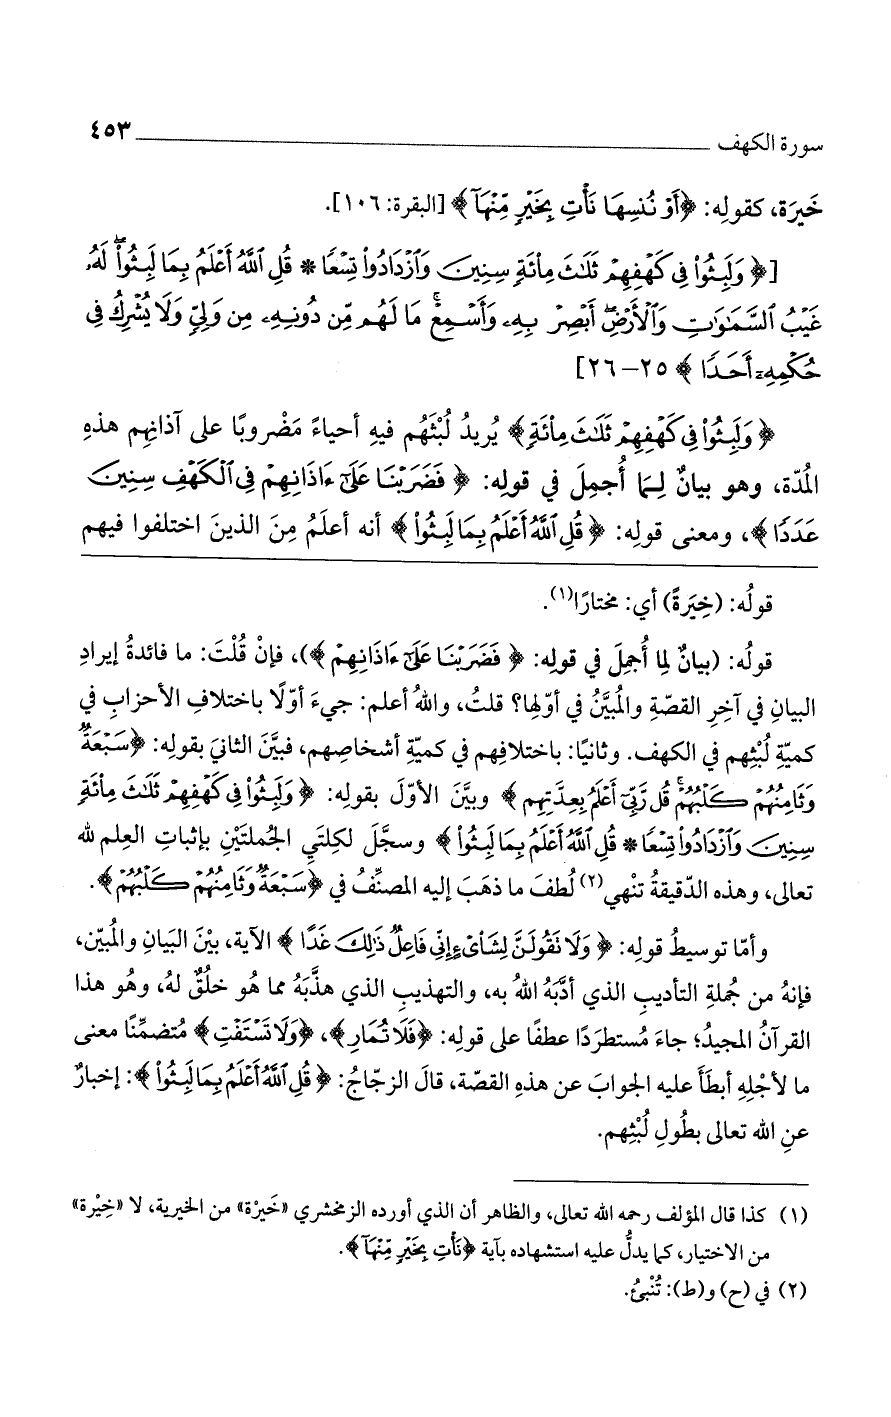 سورة الكهف ٤٥٣
خَيرَة، كقولِه: ﴿أَوْ نُنسِهَا نَأْتِ بِخَيْرٍ مِّنْهَآ﴾ [البقرة: ١٠٦].
[﴿وَلَبِثُوا۟ فِى كَهْفِهِمْ ثَلَـٰثَ مِا۟ئَةٍ سِنِينَ وَٱزْدَادُوا۟ تِسْعًا * قُلِ ٱللَّهُ أَعْلَمُ بِمَا لَبِثُوا۟ ۖ لَهُۥ
غَيْبُ ٱلسَّمَـٰوَٰتِ وَٱلْأَرْضِ ۖ أَبْصِرْ بِهِۦ وَأَسْمِعْ ۚ مَا لَهُم مِّن دُونِهِۦ مِن وَلِيٍّ وَلَا يُشْرِكُ فِى
حُكْمِهِۦٓ أَحَدًا﴾ ٢٥-٢٦]
﴿وَلَبِثُوا۟ فِى كَهْفِهِمْ ثَلَـٰثَ مِا۟ئَةٍ﴾ يُريدُ لُبْثَهُم فيهِ أحياءً مَضْروبًا على آذانِهم هذهِ
المُدّة، وهو بيانٌ لِـمَا أُجمِلَ في قولِه: ﴿فَضَرَبْنَا عَلَىٰٓ ءَاذَانِهِمْ فِى ٱلْكَهْفِ سِنِينَ
عَدَدًا﴾، ومعنى قولِه: ﴿قُلِ ٱللَّهُ أَعْلَمُ بِمَا لَبِثُوا۟﴾ أنه أعلَمُ مِنَ الذينَ اختلفوا فيهم
قولُه: (خِيَرَةً) أي: مختارًا(١).
قولُه: (بيانٌ لِما أُجمِلَ في قولِه: ﴿فَضَرَبْنَا عَلَىٰٓ ءَاذَانِهِمْ﴾)، فإنْ قُلْتَ: ما فائدةُ إيرادِ
البيانِ في آخِرِ القصّةِ والمُبيَّنُ في أوّلِها؟ قلتُ، واللهُ أعلم: جيءَ أوّلًا باختلافِ الأحزابِ في
كميّةِ لُبْثِهم في الكهف. وثانيًا: باختلافِهم في كميّةِ أشخاصِهم، فبيَّنَ الثانيَ بقولِه: ﴿سَبْعَةٌ
وَثَامِنُهُمْ كَلْبُهُمْ ۚ قُل رَّبِّىٓ أَعْلَمُ بِعِدَّتِهِم﴾ وبيَّنَ الأوّلَ بقولِه: ﴿وَلَبِثُوا۟ فِى كَهْفِهِمْ ثَلَـٰثَ مِا۟ئَةٍ
سِنِينَ وَٱزْدَادُوا۟ تِسْعًا * قُلِ ٱللَّهُ أَعْلَمُ بِمَا لَبِثُوا۟﴾ وسجَّلَ لكِلتَيِ الجُملتَيْنِ بإثباتِ العِلمِ لله
تعالى، وهذه الدّقيقةُ تنْهي(٢) لُطفَ ما ذهَبَ إليه المصنِّفُ في ﴿سَبْعَةٌ وَثَامِنُهُمْ كَلْبُهُمْ﴾.
وأمّا توسيطُ قولِه: ﴿وَلَا تَقُولَنَّ لِشَا۟ىْءٍ إِنِّى فَاعِلٌ ذَٰلِكَ غَدًا﴾ الآية، بيْنَ البَيانِ والمُبيّن،
فإنهُ من جُملةِ التأديبِ الذي أدَّبَهُ اللهُ به، والتهذيبِ الذي هذَّبَهُ مما هُو خلُقٌ لهُ، وهُو هذا
القرآنُ المجيدُ؛ جاءَ مُستطرَدًا عطفًا على قولِه: ﴿فَلَا تُمَارِ﴾، ﴿وَلَا تَسْتَفْتِ﴾ مُتضمِّنًا معنى
ما لأجْلِهِ أبطَأَ عليه الجوابَ عن هذهِ القصّة، قالَ الزجّاجُ: ﴿قُلِ ٱللَّهُ أَعْلَمُ بِمَا لَبِثُوا۟﴾: إخبارٌ
عنِ الله تعالى بطُولِ لُبْثِهم.
(١) كذا قال المؤلف رحمه الله تعالى، والظاهر أن الذي أورده الزمخشري «خَيرْة» من الخيرية، لا «خِيْرة»
من الاختيار، كما يدلُّ عليه استشهاده بآية ﴿نَأْتِ بِخَيْرٍ مِّنْهَآ﴾.
(٢) في (ح) و(ط): تُنْبئُ.